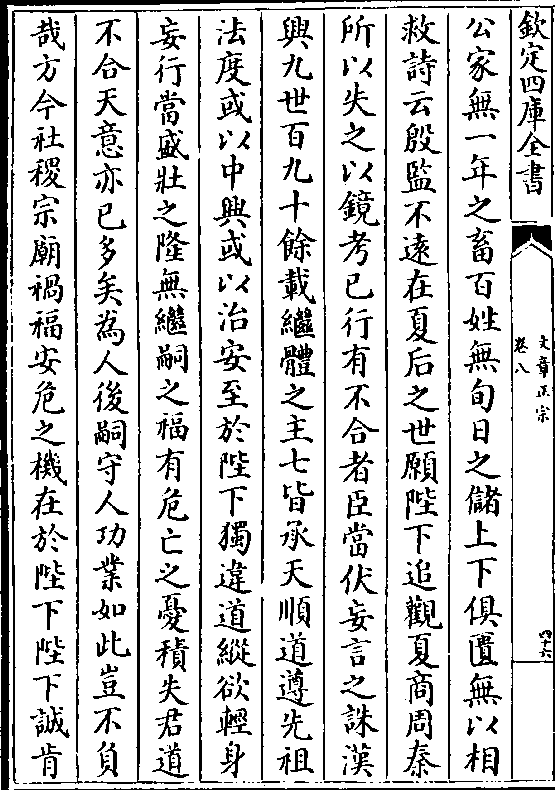 欽定四庫全書
文章正宗
卷八
四十六
公家無一年之畜百姓無旬日之儲上下俱匱無以相
救詩云殷監不遠在夏后之世願陛下追觀夏商周秦
所以失之以鏡考已行有不合者臣當伏妄言之誅漢
興九世百九十餘載繼體之主七皆承天順道遵先祖
法度或以中興或以治安至於陛下獨違道縱欲輕身
妄行當盛壯之隆無繼嗣之福有危亡之憂積失君道
不合天意亦已多矣為人後嗣守人功業如此豈不負
哉方今社稷宗廟禍福安危之機在於陛下陛下誠肯